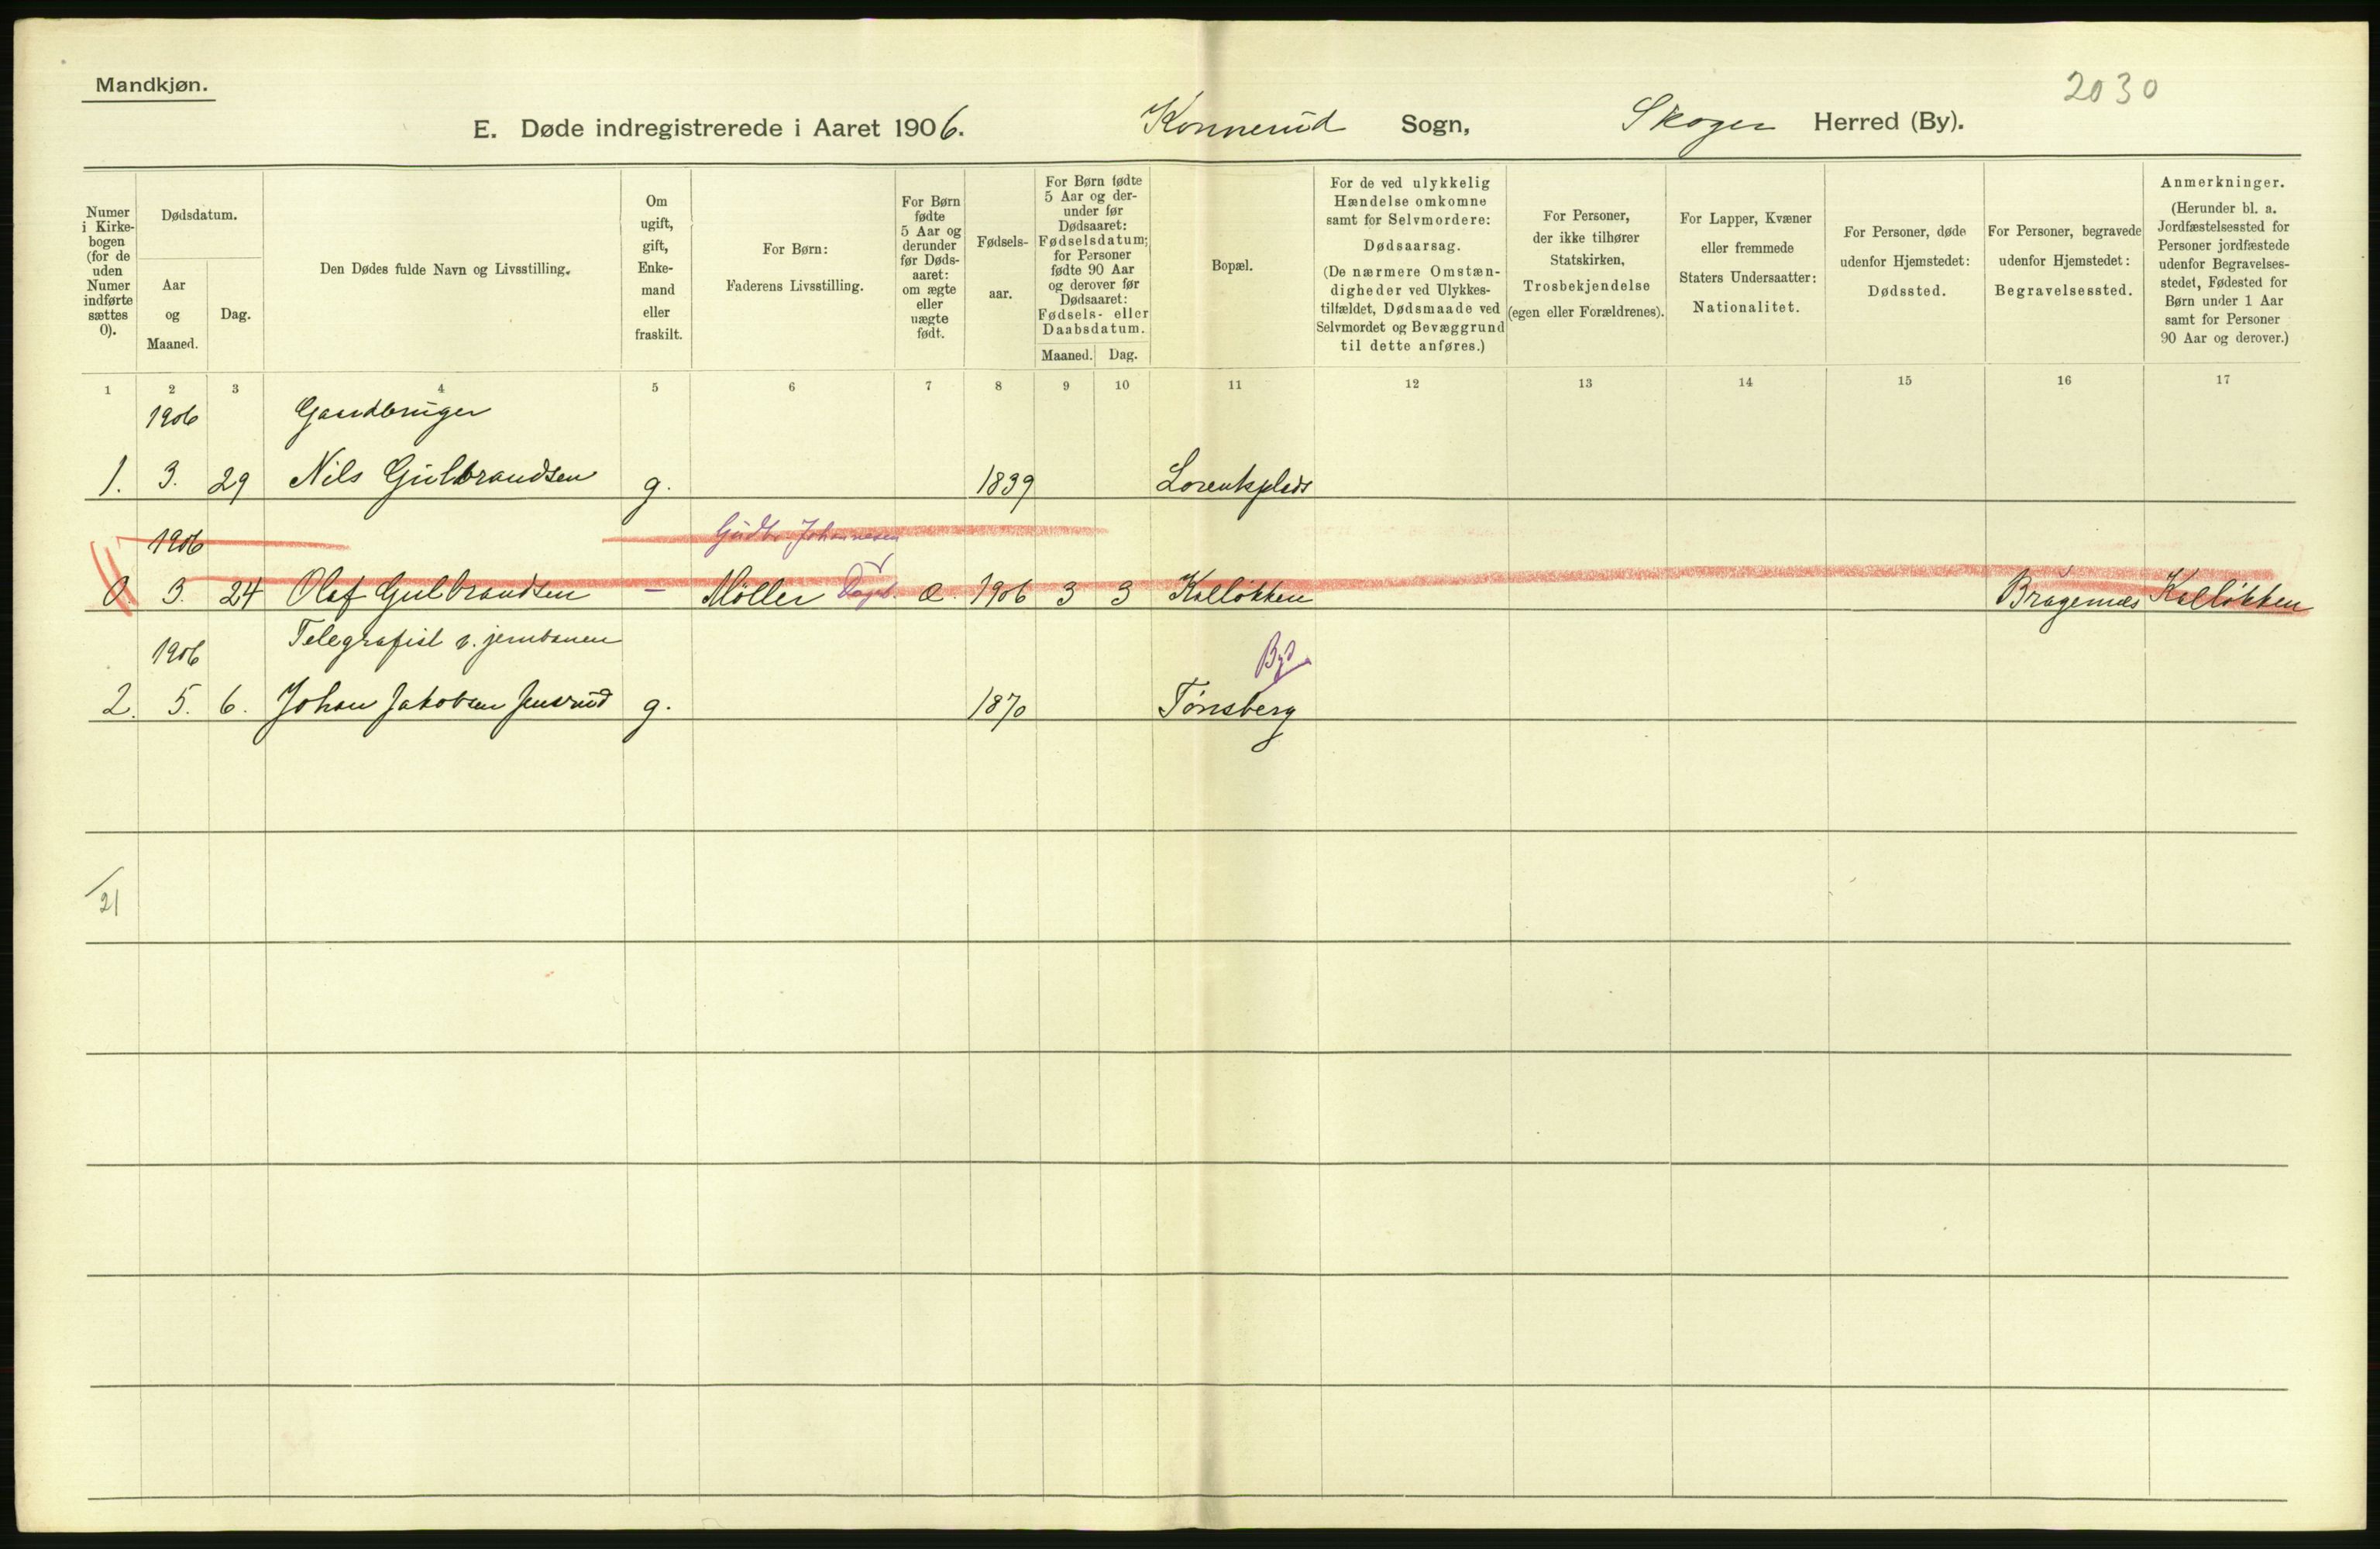 Mandkjøn.
2030
E. Døde indregistrerede i Aaret 1906. Konnerud Sogn, Skoger Herred (By).
Numer i Kirkebogen (for de uden Numer indførte sættes 0).
Dødsdatum.
Aar og Maaned.
Dag.
Den Dødes fulde Navn og Livsstilling.
Om ugift, gift, Enkemand eller fraskilt.
For Børn: Faderens Livsstilling.
For Børn fødte 5 Aar og derunder før Dødsaaret: om ægte eller uægte født.
Fødselsaar.
For Børn fødte 5 Aar og derunder før Dødsaaret: Fødselsdatum; for Personer fødte 90 Aar og derover før Dødsaaret: Fødsels- eller Daabsdatum.
Maaned. Dag.
Bopæl.
For de ved ulykkelig Hændelse omkomne samt for Selvmordere: Dødsaarsag. (De nærmere Omstændigheder ved Ulykkestilfældet, Dødsmaade ved Selvmordet og Bevæggrund til dette anføres.)
For Personer, der ikke tilhører Statskirken, Trosbekjendelse (egen eller Forældrenes).
For Lapper, Kvæner eller fremmede Staters Undersaatter: Nationalitet.
For Personer, døde udenfor Hjemstedet: Dødssted.
For Personer, begravede udenfor Hjemstedet: Begravelsessted.
Anmerkninger. (Herunder bl. a. Jordfæstelsessted for Personer jordfæstede udenfor Begravelsesstedet, Fødested for Børn under 1 Aar samt for Personer 90 Aar og derover.)
1 2 3 4 5 6 7 8 9 10 11 12 13 14 15 16 17
1906 Gaardbruger
1. 3. 29 Nils Gulbrandsen g. 1839 Lorentsplads
1906 Gudbr. Johannesen
0. 3. 24 Olaf Gulbrandsen - Møller Dagl. æ. 1906 3 3 Kalløkken Bragernæs Kalløkken
1906 Telegrafist v. jernbanen By
2. 5. 6. Johan Jakobsen Jensrud g. 1870 Tønsberg
/21